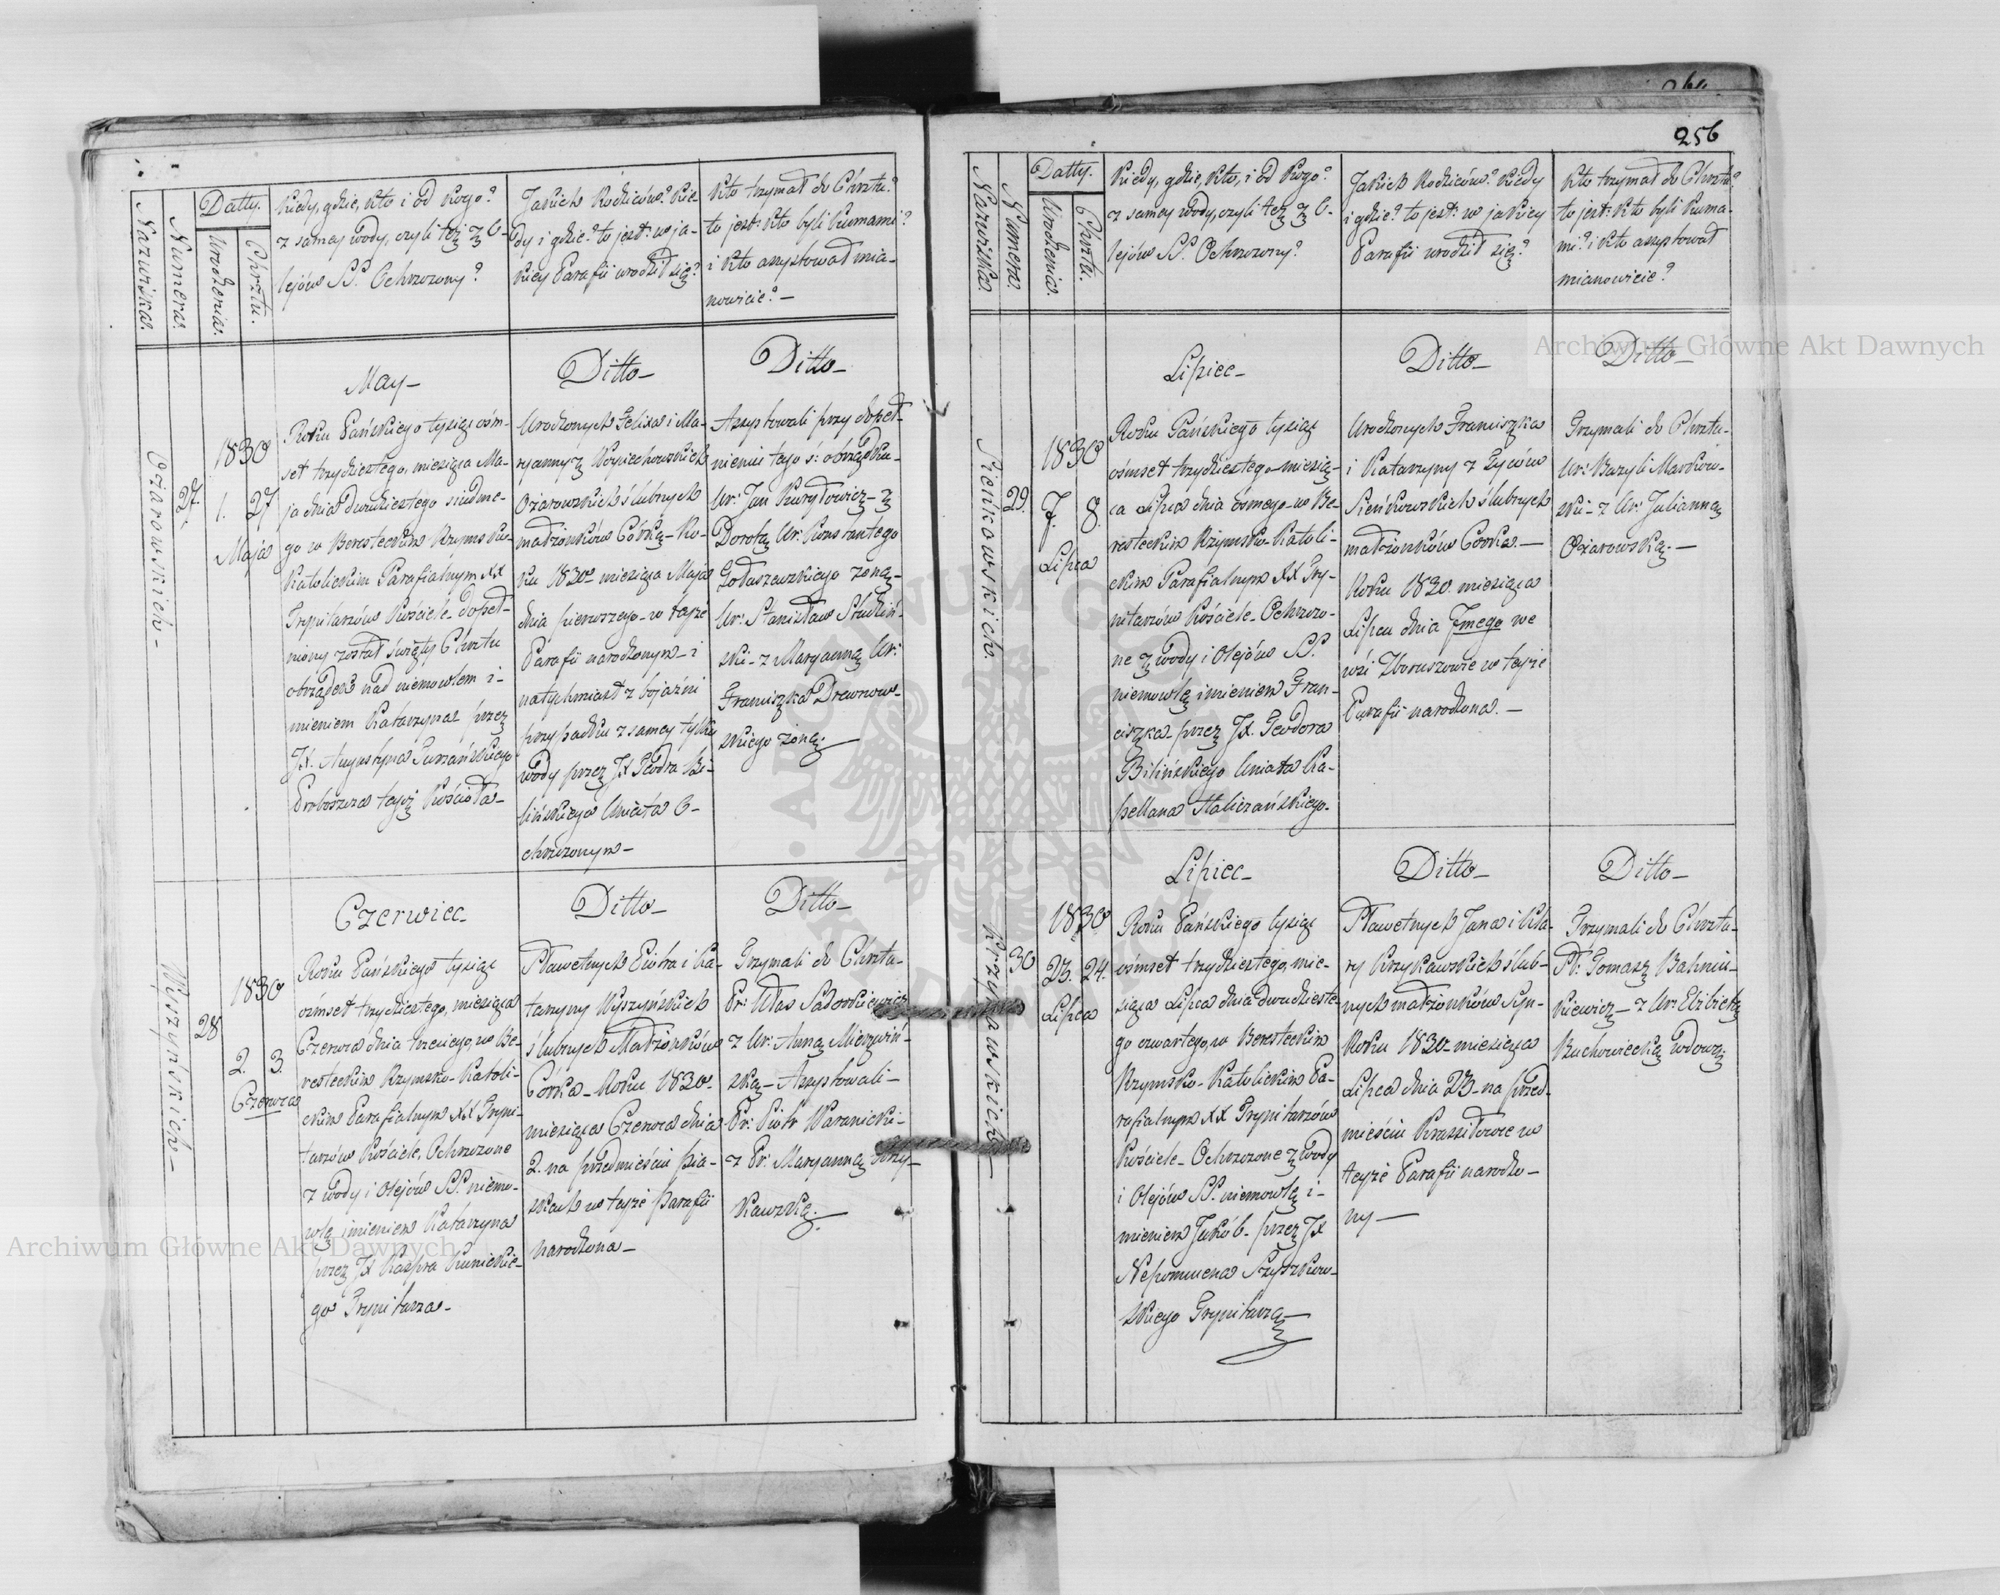 256
Nazwiska.
Numera.
Datty.
Urodzenia.
Chrztu.
Kiedy, gdzie, kto i od kogo?
z samey wody, czyli też z O-
lejów SS. Ochrzczony?
Jakich Rodziców? Kie-
dy i gdzie? to jest: w ja-
kiey Parafii urodził się?
Kto trzymał do Chrztu?
to jest: kto byli Kumami?
i kto assystował mia-
nowicie? —
Ożarowskich —
27.
1830
1. 27
Maja
May —
Roku Pańskiego tysiąc ośm-
set trzydziestego, miesiąca Ma-
ja dnia dwudziestego siudme-
go w Beresteckim Rzymsko-
Katolickim Parafialnym XX
Trynitarzów Kościele dopeł-
niony został święty Chrztu
obrządek nad niemowlem i-
mieniem Katarzyna przez
JX. Augustyna
Proboszcza tegoż Kościoła —
Ditto —
Urodzonych Felixa i Ma-
ryanny z Woyciechowskich
Ożarowskich ślubnych
małżonków Córką — Ro-
ku 1830 miesiąca Maja
dnia pierwszego — w teyże
Parafii narodzonym — i
natychmiast z bojaźni
przypadku z samey tylko
wody przez JX Teodora Bi-
lińskiego Uniata O-
chrzczonym —
Ditto —
Assystowali przy dopeł-
nieniu tego ś: obrządku —
Ur: Jan Kuryłowicz — z
Dorotą Ur: Konstantego
żoną —
Ur: Stanisław
ski — z Maryanną Ur:
Franciszka Drewnow-
skiego żoną. —
Wyszyńskich —
28
1830
2. 3.
Czerwca
Czerwiec —
Roku Pańskiego tysiąc
ośmset trzydziestego, miesiąca
Czerwca dnia trzeciego, w Be-
resteckim Rzymsko-Katoli-
ckim Parafialnym XX Tryni-
tarzów Kościele, Ochrzczone
z wody i Olejów SS. niemo-
wlę imieniem Katarzyna
przez JX Kaspra Kunickie-
go Trynitarza —
Ditto —
Sławetnych Piotra i Ka-
tarzyny Wyszyńskich
ślubnych Małżonków
Córka — Roku 1830.
miesiąca Czerwca dnia
2. na przedmieściu Pia-
skach w teyże Parafii
narodzona —
Ditto —
Trzymali do Chrztu —
z Ur: Anną Mierzwiń-
ską — Assystowali —
Piotr Waranicki —
z Maryanną Krzy-
kawską. —
Nazwiska.
Numera.
Datty.
Urodzenia.
Chrztu.
Kiedy, gdzie, kto, i od kogo?
z samey wody, czyli też z O-
lejów SS. Ochrzczony?
Jakich Rodziców? kiedy
i gdzie? to jest: w jakiey
Parafii urodził się?
Kto trzymał do Chrztu?
to jest: kto byli Kuma-
mi? i kto assystował
mianowicie?
Sieńkowskich.
29.
1830
7. 8.
Lipca
Lipiec —
Roku Pańskiego tysiąc
ośmset trzydziestego — miesią-
ca Lipca dnia ósmego — w Be-
resteckim Rzymsko-Katoli-
ckim Parafialnym XX Try-
nitarzów Kościele — Ochrzczo-
ne z wody i Olejów SS.
niemowlę imieniem Fran-
ciszka — przez JX. Teodora
Bilińskiego Uniata Ka-
pellana
Ditto —
Urodzonych Franciszka
i Katarzyny z Zycow
Sieńkowskich ślubnych
małżonków Córka. —
Roku 1830. miesiąca
Lipca dnia 7mego we
wsi Zboruszowie w teyże
Parafii narodzona. —
Ditto —
Trzymali do Chrztu —
Ur: Bazyli Markow-
ski — z Ur: Julianną
Ożarowską. —
Krzykawskich —
30
1830
23. 24.
Lipca
Lipiec —
Roku Pańskiego tysiąc
ośmset trzydziestego, mie-
siąca Lipca dnia dwudzieste-
go czwartego, w Beresteckim
Rzymsko-Katolickim Pa-
rafialnym XX Trynitarzów
Kościele — Ochrzczone z wody
i Olejów SS. niemowlę i-
mieniem Jakób — przez JX
Nepomucena Szyszkow-
skiego Trynitarza —
Ditto —
Sławetnych Jana i Kla-
ry Krzykawskich ślub-
nych małżonków Syn —
Roku 1830 miesiąca
Lipca dnia 23 — na przed-
mieściu Krassiłowie w
teyże Parafii narodzo-
ny —
Ditto —
Trzymali do Chrztu —
Sł: Tomasz Bahniu-
kiewicz — z Ur: Elżbietą
Buchowiecką wdową.
Archiwum Główne Akt Dawnych
Archiwum Główne Akt Dawnych